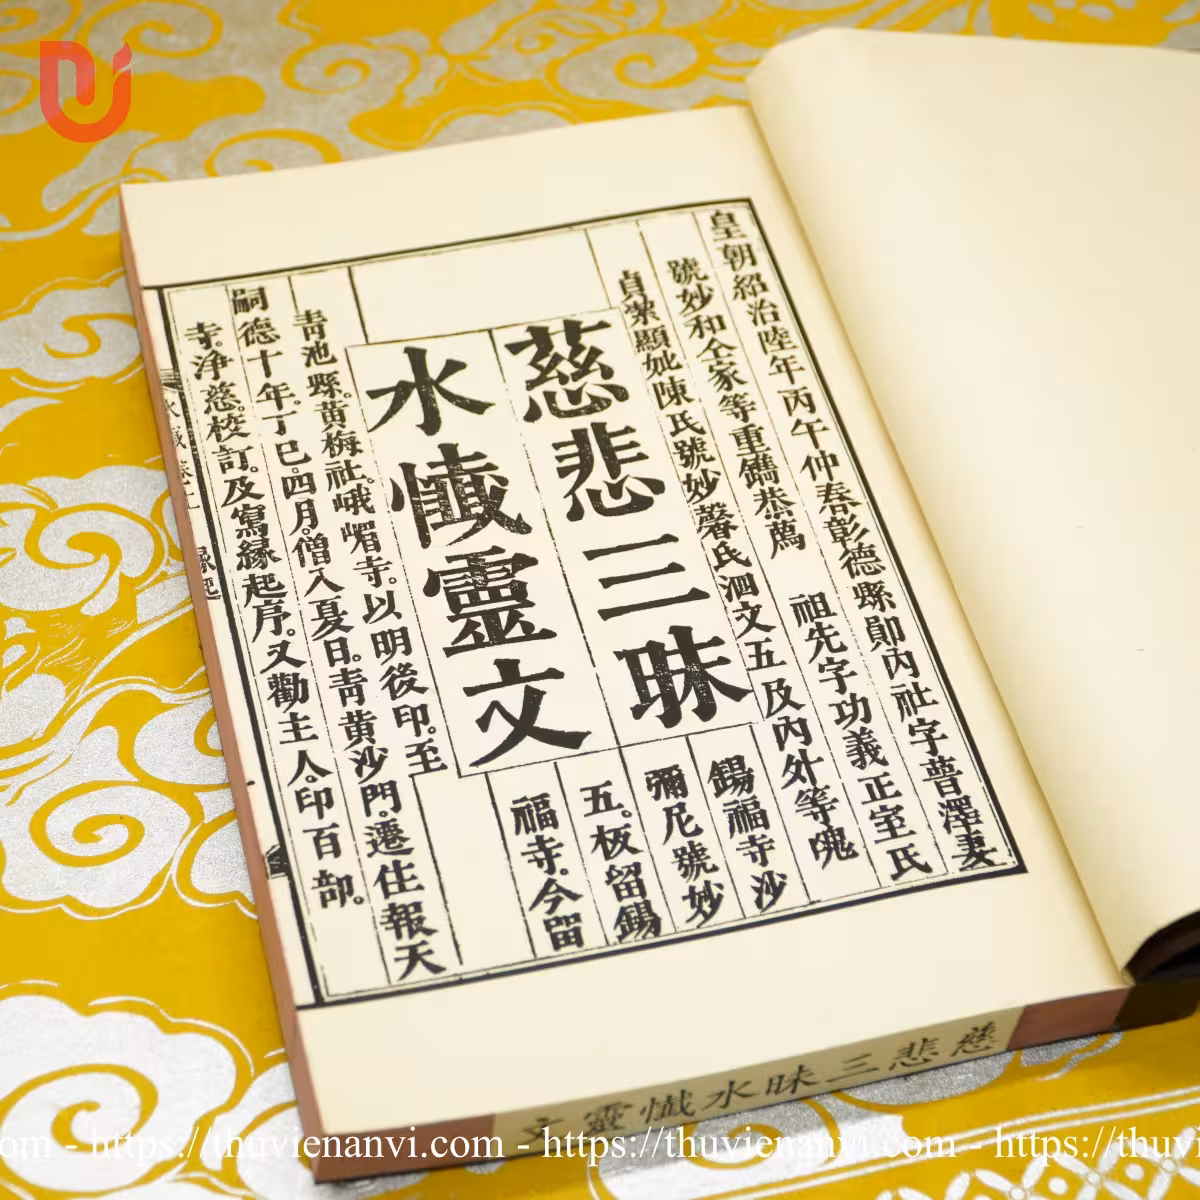 皇朝紹治陸年丙午仲春彰德縣鄖內社字普澤妻
號妙和仝家等重鐫恭薦 祖先字功義正室氏
貞潔顯妣陳氏號妙馨氏涸文五及內外等魂
慈悲三昧
水懺靈文
錫福寺沙
彌尼號妙
五。板留錫
福寺。今留
青池縣。黄梅社。峨嵋寺。以明後印。至
嗣德十年。丁巳。四月。僧入夏日。青黄沙門。遷住報天
寺。淨慈。校訂。及寫緣起序。又勸主人。印百部。
水懺卷上
緣起
慈悲三昧水懺靈文
https://thuvienanvi.com - https://thuvienanvi.com - https://thuvienanvi.com